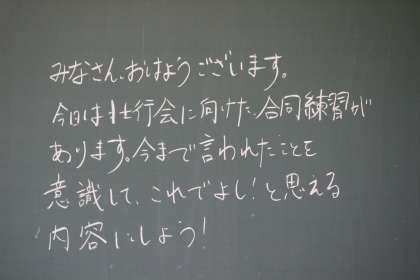 みなさん、おはようございます。
今日は壮行会に向けた合同練習が
あります。今まで言われたことを
意識して、これでよし!と思える
内容にしよう!